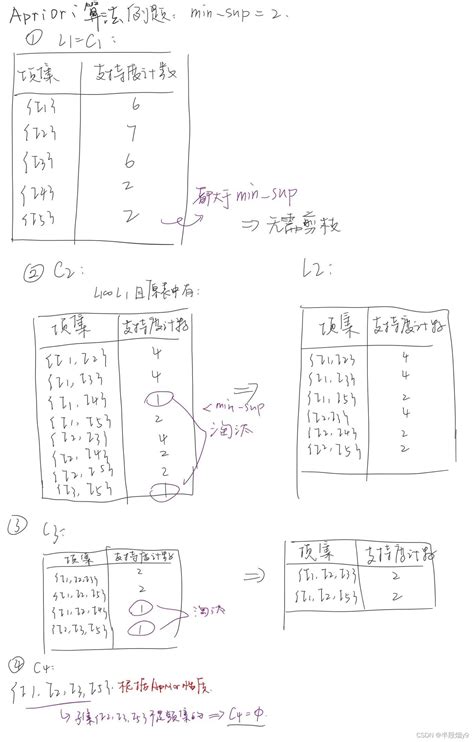 Apriori算法例题: min-sup=2.
① L1=C1:
项集 支持度计数
{I1} 6
{I2} 7
{I3} 6
{I4} 2
{I5} 2
都大于min-sup
⇒ 无需剪枝
② C2:
L1∞L1 且原表中有:
项集 支持度计数
{I1, I2} 4
{I1, I3} 4
{I1, I4} 1
{I1, I5} 2
{I2, I3} 4
{I2, I4} 2
{I2, I5} 2
{I3, I5} 1
<min-sup
淘汰
⇒
L2:
项集 支持度计数
{I1, I2} 4
{I1, I3} 4
{I1, I5} 2
{I2, I3} 4
{I2, I4} 2
{I2, I5} 2
③ C3:
项集 支持度计数
{I1, I2, I3} 2
{I1, I2, I5} 2
{I1, I2, I4} 1
{I2, I3, I5} 1
淘汰
⇒
项集 支持度计数
{I1, I2, I3} 2
{I1, I2, I5} 2
④ C4:
{I1, I2, I3, I5}. 根据Apriori性质.
↳ 子集{I2, I3, I5}不是频集的 ⇒ C4=Φ.
CSDN @半段烟y6